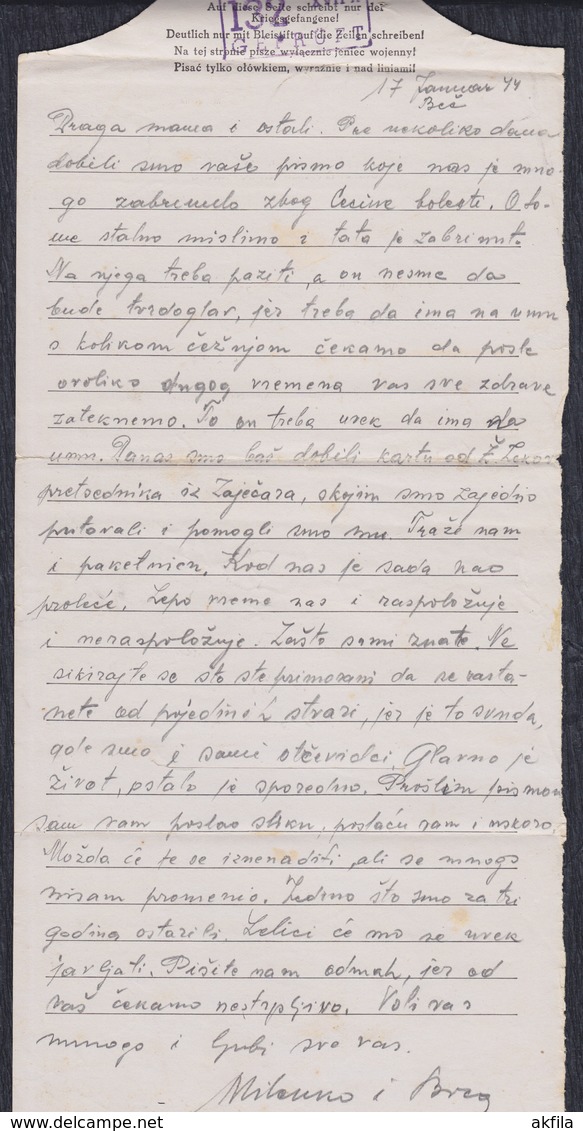 Auf diese Seite schreibt nur der
Kriegsgefangene!
Deutlich nur mit Bleistift auf die Zeilen schreiben!
Na tej stronie pisze wyłącznie jeniec wojenny!
Pisać tylko ołówkiem, wyraźnie i nad liniami!
132
GEPRÜFT
17 Januar 44
Beč
Draga mama i ostali. Pre nekoliko dana
dobili smo vaše pismo koje nas je mno-
go zabrinulo zbog Cecine bolesti. O to-
me stalno mislimo i tata je zabrinut.
Na njega treba paziti, a on nesme da
bude tvrdoglav, jer treba da ima na umu
s kolikom čežnjom čekamo da posle
ovoliko dugog vremena vas sve zdrave
zateknemo. To on treba uvek da ima na
umu. Danas smo baš dobili kartu od Ž.
pretsednika iz Zaječara, skojim smo zajedno
putovali i pomogli smo mu. Traže nam
i paketnicu. Kod nas je sada kao
proleće. Lepo vreme nas i raspoložuje
i neraspoložuje. Zašto sami znate. Ne
sikirajte se sto ste primorani da se rasta-
nete od pojedini stvari, jer je to svuda,
gde smo i sami očevidci. Glavno je
život, ostalo je sporedno. Prošlim pismom
sam vam poslao sliku, poslaću vam i uskoro.
Možda će te se iznenaditi, ali se mnogo
nisam promenio. Jedino što smo za tri
godina ostarili. Lelici će mo se uvek
javljati. Pišite nam odmah, jer od
vas čekamo nestrpljivo. Voli vas
mnogo i ljubi sve vas.
Milenko i